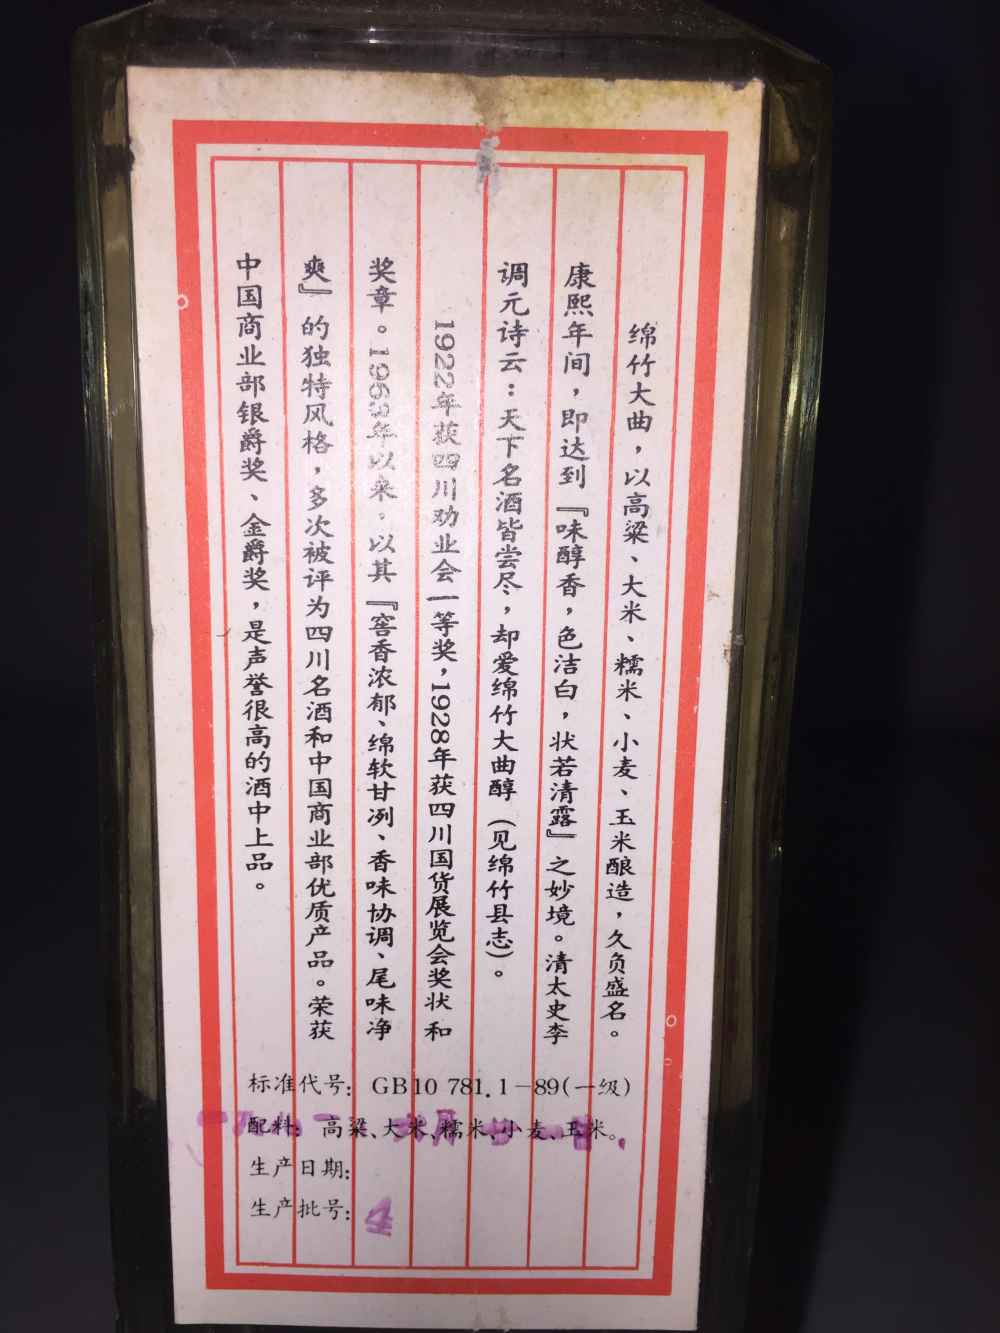 绵竹大曲，以高粱、大米、糯米、小麦、玉米酿造，久负盛名。
康熙年间，即达到『味醇香，色洁白，状若清露』之妙境。清太史李
调元诗云：天下名酒皆尝尽，却爱绵竹大曲醇（见绵竹县志）。
1922年获四川劝业会一等奖，1928年获四川国货展览会奖状和
奖章。1963年以来，以其『窖香浓郁、绵软甘冽、香味协调、尾味净
爽』的独特风格，多次被评为四川名酒和中国商业部优质产品。荣获
中国商业部银爵奖、金爵奖，是声誉很高的酒中上品。
标准代号：GB10 781.1-89(一级)
配料：高粱、大米、糯米、小麦、玉米。
生产日期：
生产批号：4